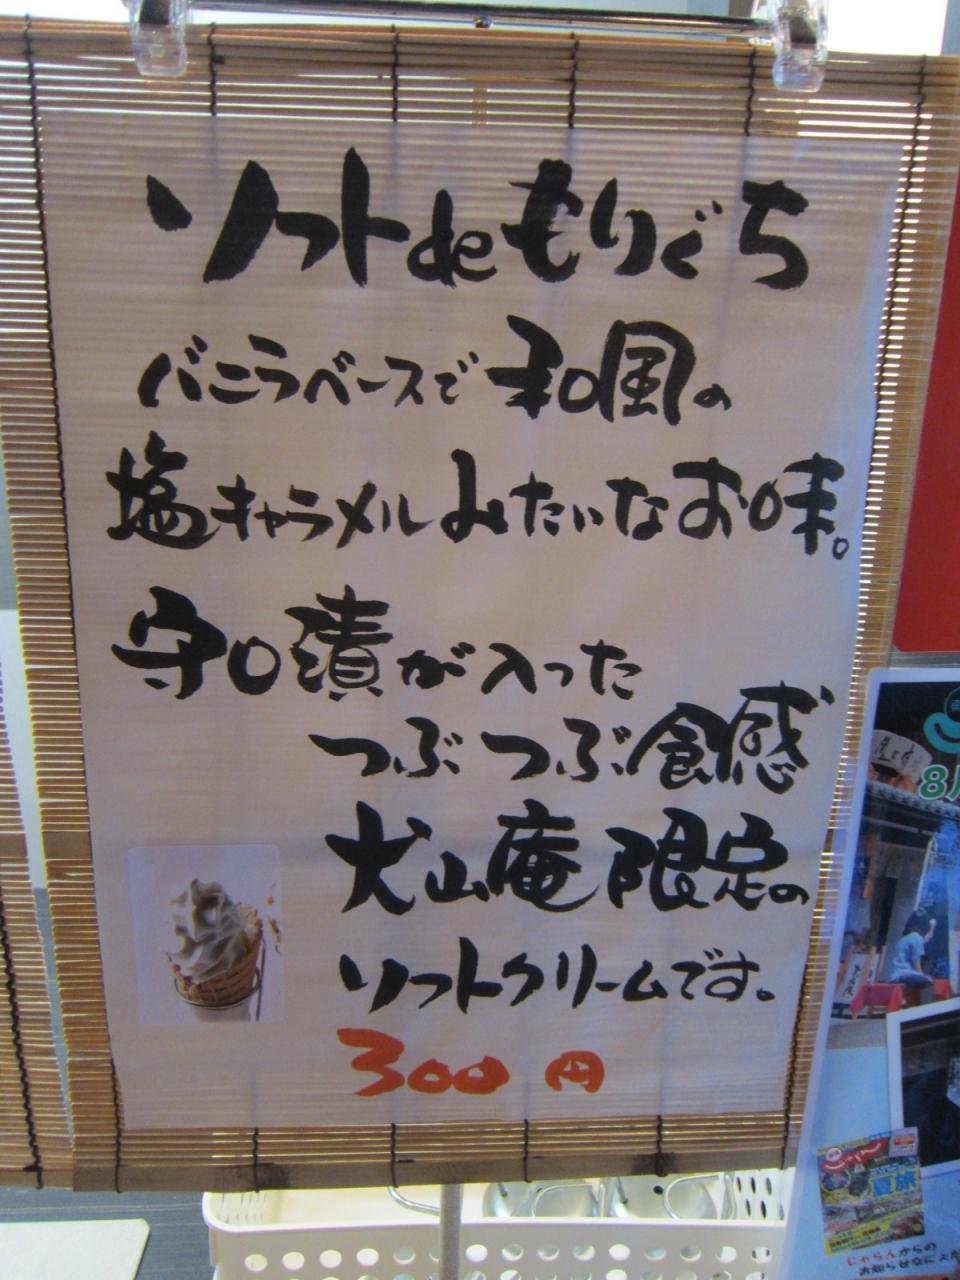 ソフトdeもりぐち
バニラベースで和風の
塩キャラメルみたいなお味。
守口漬が入った
つぶつぶ食感
犬山庵限定の
ソフトクリームです。
300円
8月
じゃらん
夏旅
じゃらんからの
お知らせなによ